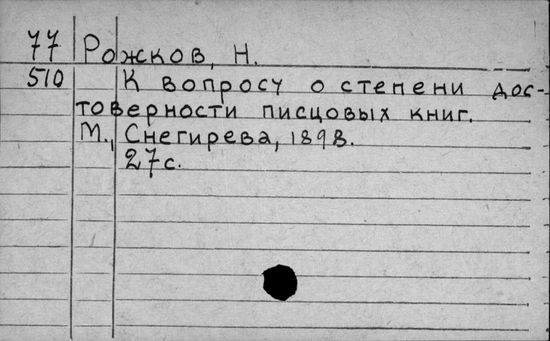 77 Рожков, Н.
510 К вопросу о степени дос-
товерности писцовых книг.
М., Снегирева, 1898.
27 с.